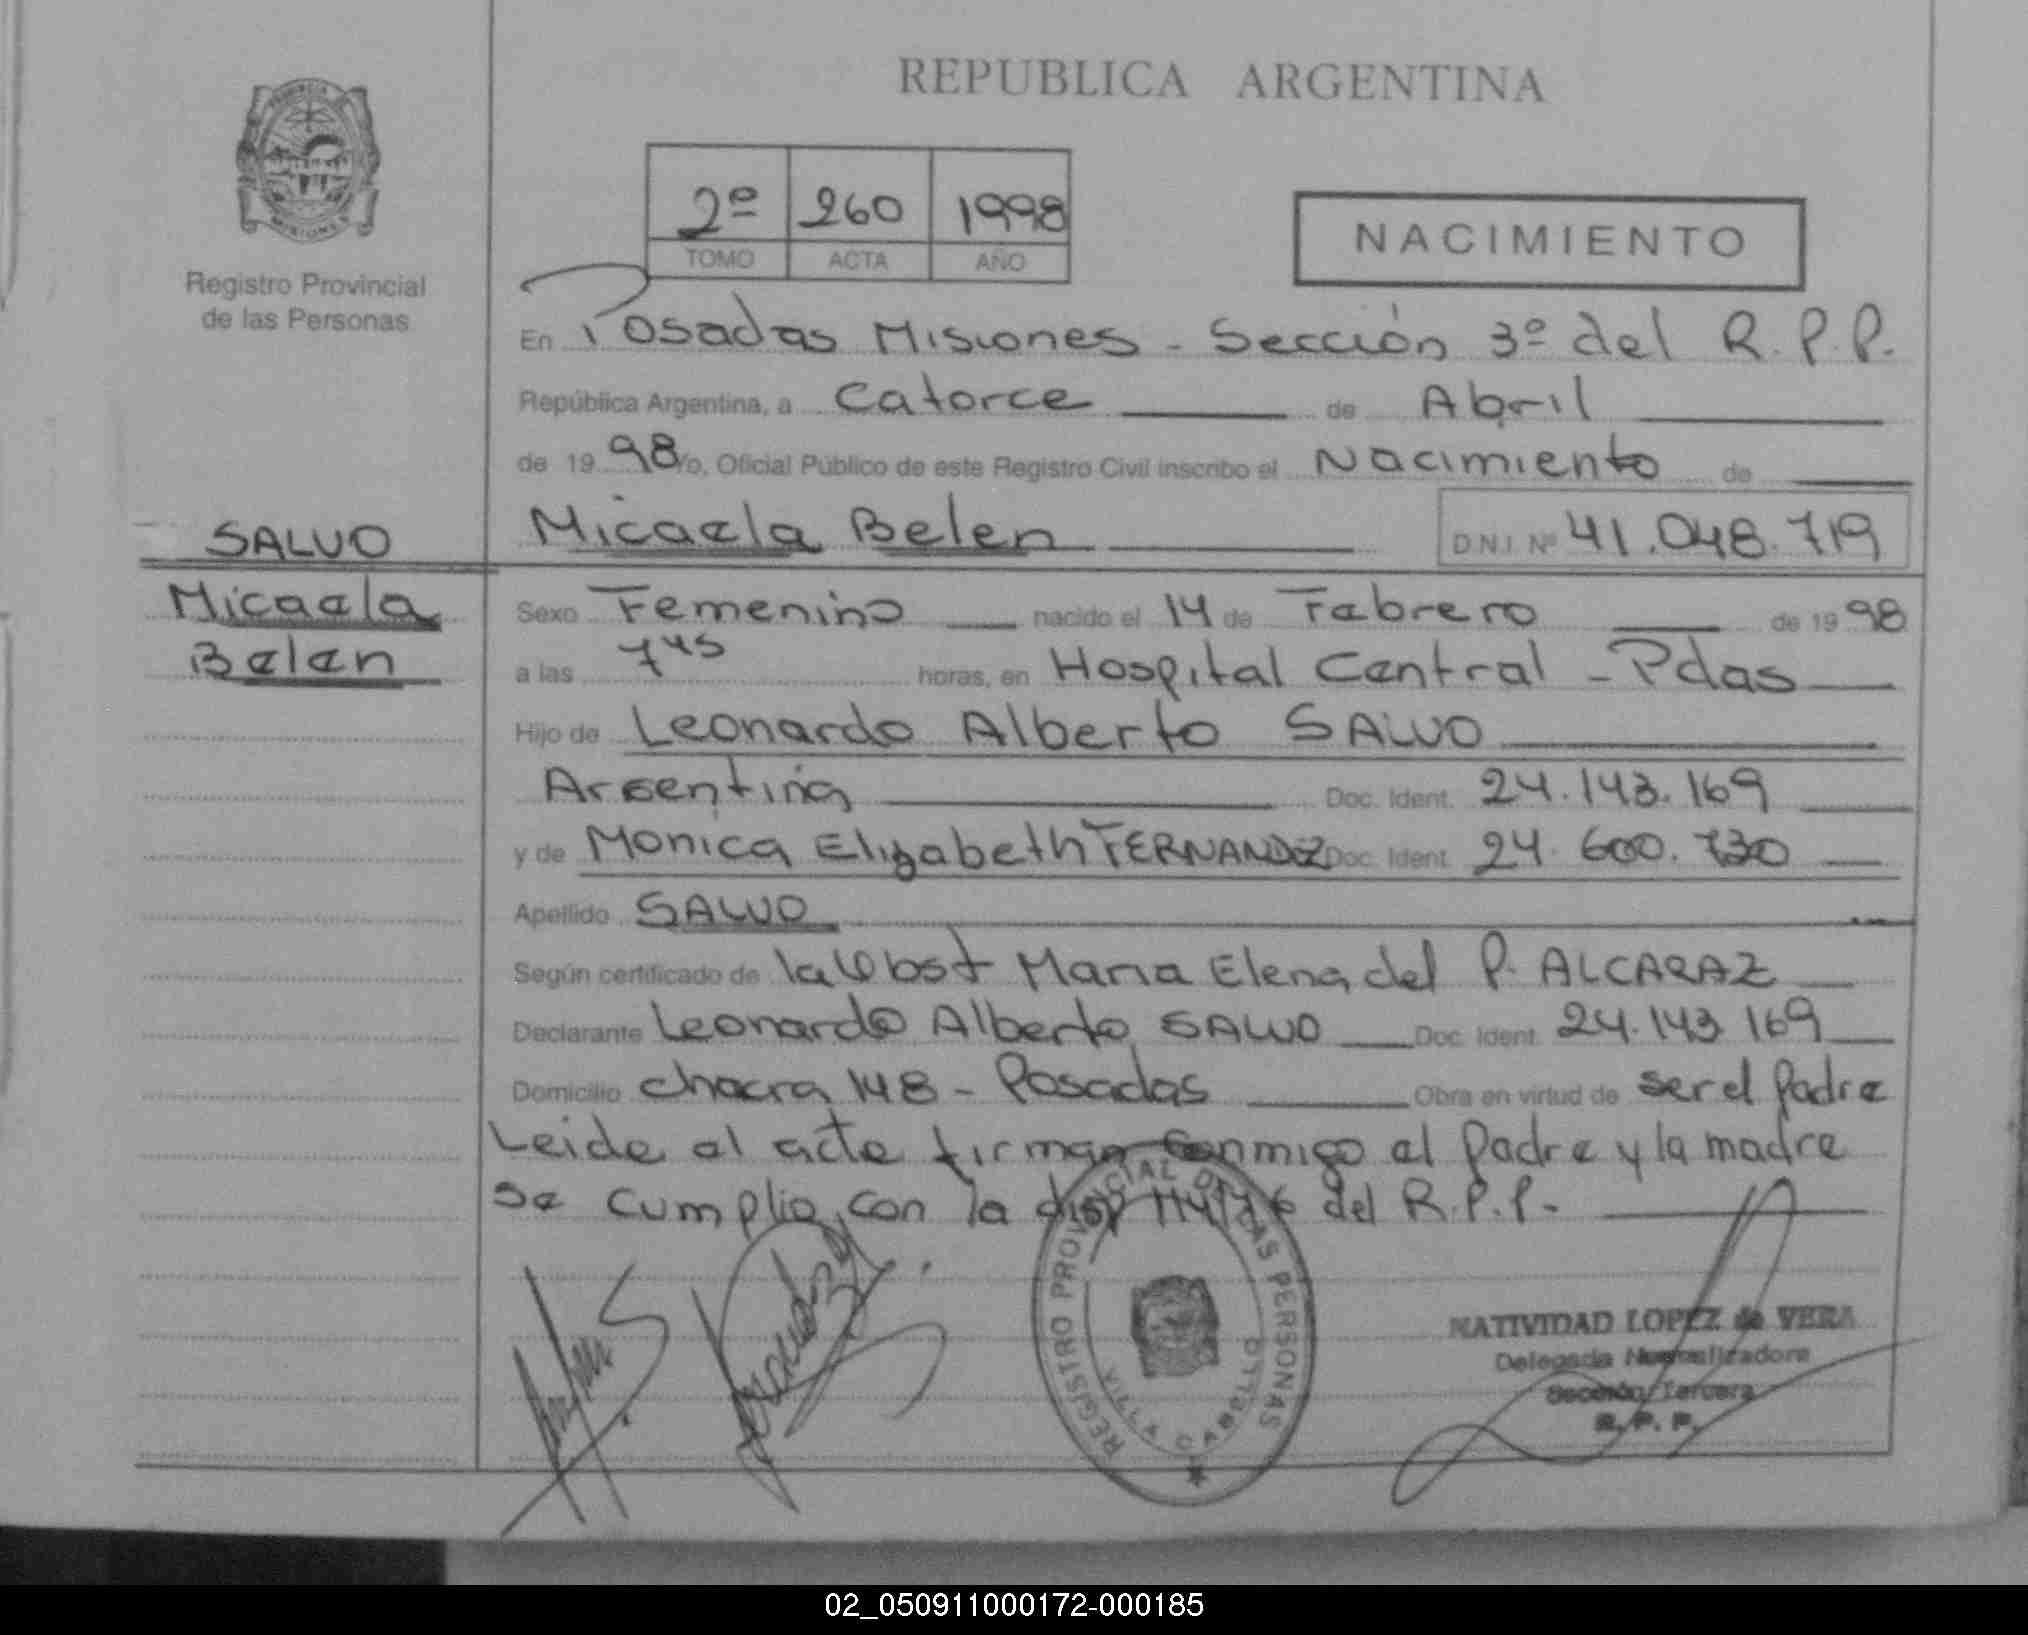 REPUBLICA ARGENTINA
PROVINCIA
MISIONES
Registro Provincial
de las Personas
2º 260 1998
TOMO ACTA AÑO
NACIMIENTO
En Posadas Misiones - Sección 3º del R.P.P.
República Argentina, a Catorce de Abril
de 1998 Yo, Oficial Público de este Registro Civil inscribo el Nacimiento de
SALVO
Micaela Belen D.N.I. Nº 41.048.719
Micaela
Belen
Sexo Femenino nacido el 14 de Febrero de 1998
a las 7 45 horas, en Hospital Central - Pdas
Hijo de Leonardo Alberto SALVO
Argentina Doc. Ident. 24.143.169
y de Monica Elizabeth FERNANDEZ Doc. Ident. 24.600.730
Apellido SALVO
Según certificado de la Obst Maria Elena del P. ALCARAZ
Declarante Leonardo Alberto SALVO Doc. Ident. 24.143.169
Domicilio chacra 148 - Posadas Obra en virtud de ser el padre
Leida el acta firman conmigo el padre y la madre
se cumplio con la disp del R.P.P.
REGISTRO PROVINCIAL DE LAS PERSONAS
VILLA CABELLO
NATIVIDAD LOPEZ de VERA
Delegada Normalizadora
Sección Tercera
R. P. P.
02_050911000172-000185